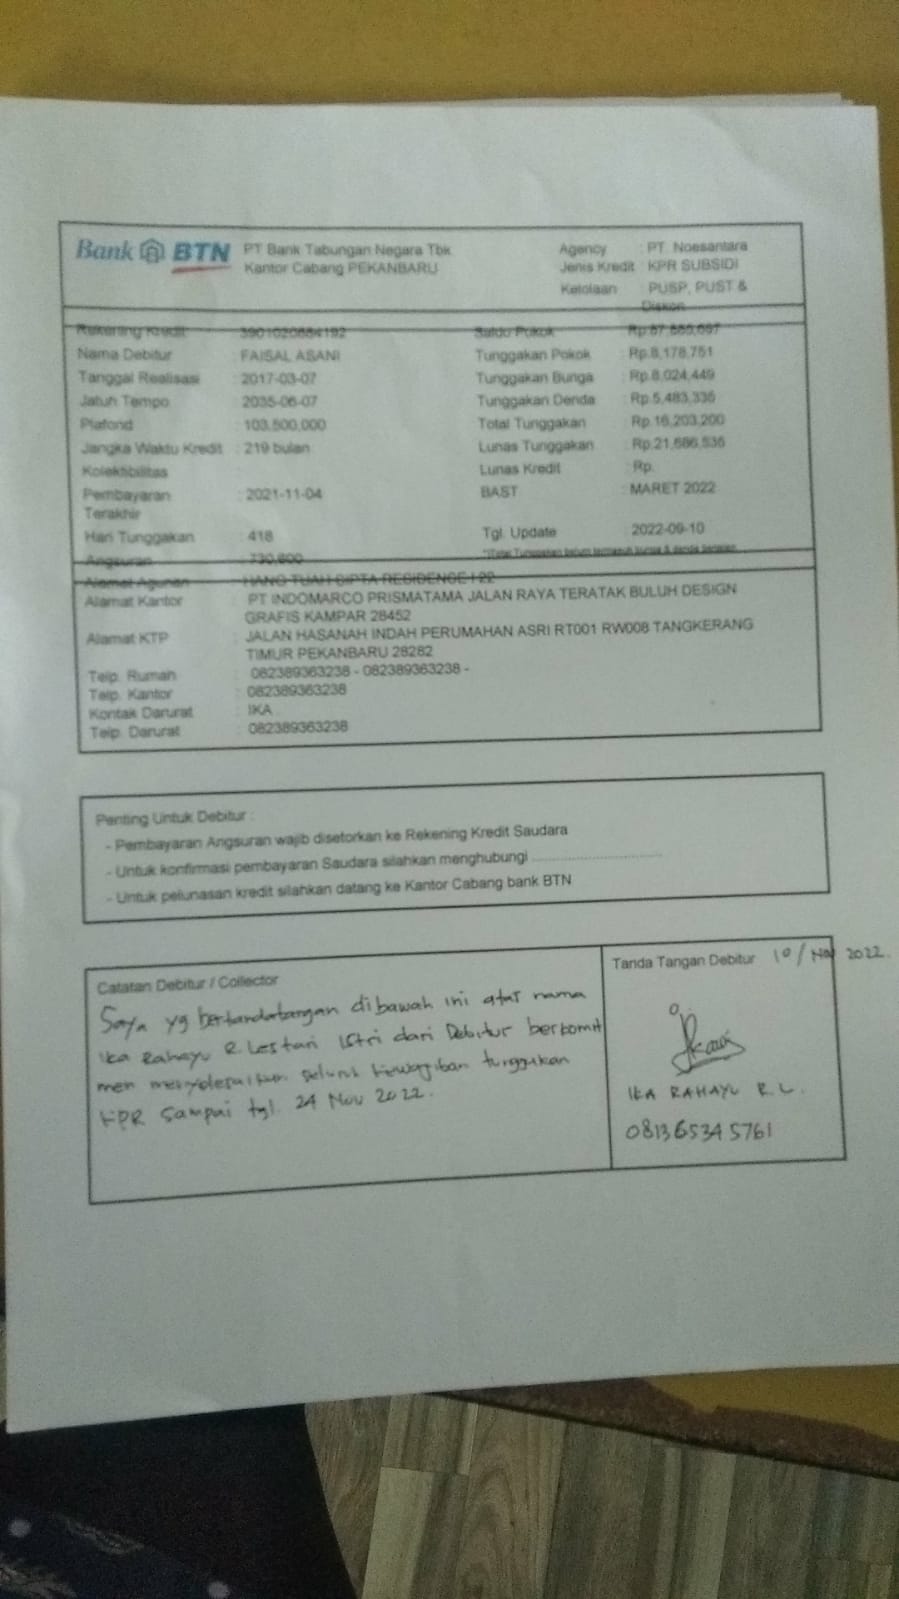 Bank BTN PT Bank Tabungan Negara Tbk
Kantor Cabang PEKANBARU
Agency : PT. Noesantara
Jenis Kredit : KPR SUBSIDI
Kelolaan : PUSP, PUST &
Diskon
Rekening Kredit : Saldo Pokok :
Nama Debitur : FAISAL ASANI Tunggakan Pokok : Rp.8,178,751
Tanggal Realisasi : 2017-03-07 Tunggakan Bunga : Rp.8,024,449
Jatuh Tempo : 2035-06-07 Tunggakan Denda : Rp.5,483,335
Plafond : 103,500,000 Total Tunggakan : Rp.16,203,200
Jangka Waktu Kredit : 219 bulan Lunas Tunggakan : Rp.21,686,535
Kolektibilitas Lunas Kredit : Rp.
Pembayaran : 2021-11-04 BAST : MARET 2022
Terakhir
Hari Tunggakan : 418 Tgl. Update : 2022-09-10
Angsuran : 730,600 *)Total Tunggakan belum termasuk bunga & denda berjalan
Alamat Agunan : HANG TUAH CIPTA RESIDENCE I 22
Alamat Kantor : PT INDOMARCO PRISMATAMA JALAN RAYA TERATAK BULUH DESIGN
GRAFIS KAMPAR 28452
Alamat KTP : JALAN HASANAH INDAH PERUMAHAN ASRI RT001 RW008 TANGKERANG
TIMUR PEKANBARU 28282
Telp. Rumah : 082389363238 - 082389363238 -
Telp. Kantor : 082389363238
Kontak Darurat : IKA
Telp. Darurat : 082389363238
Penting Untuk Debitur :
- Pembayaran Angsuran wajib disetorkan ke Rekening Kredit Saudara
- Untuk konfirmasi pembayaran Saudara silahkan menghubungi ..............................
- Untuk pelunasan kredit silahkan datang ke Kantor Cabang bank BTN
Catatan Debitur / Collector
Saya yg bertandatangan dibawah ini atas nama
Ika Rahayu R. Lestari Istri dari Debitur berkomit
men menyelesaikan seluruh kewajiban tunggakan
KPR sampai tgl. 24 Nov 2022.
Tanda Tangan Debitur 10/Nov 2022.
IKA RAHAYU R. L.
081365345761